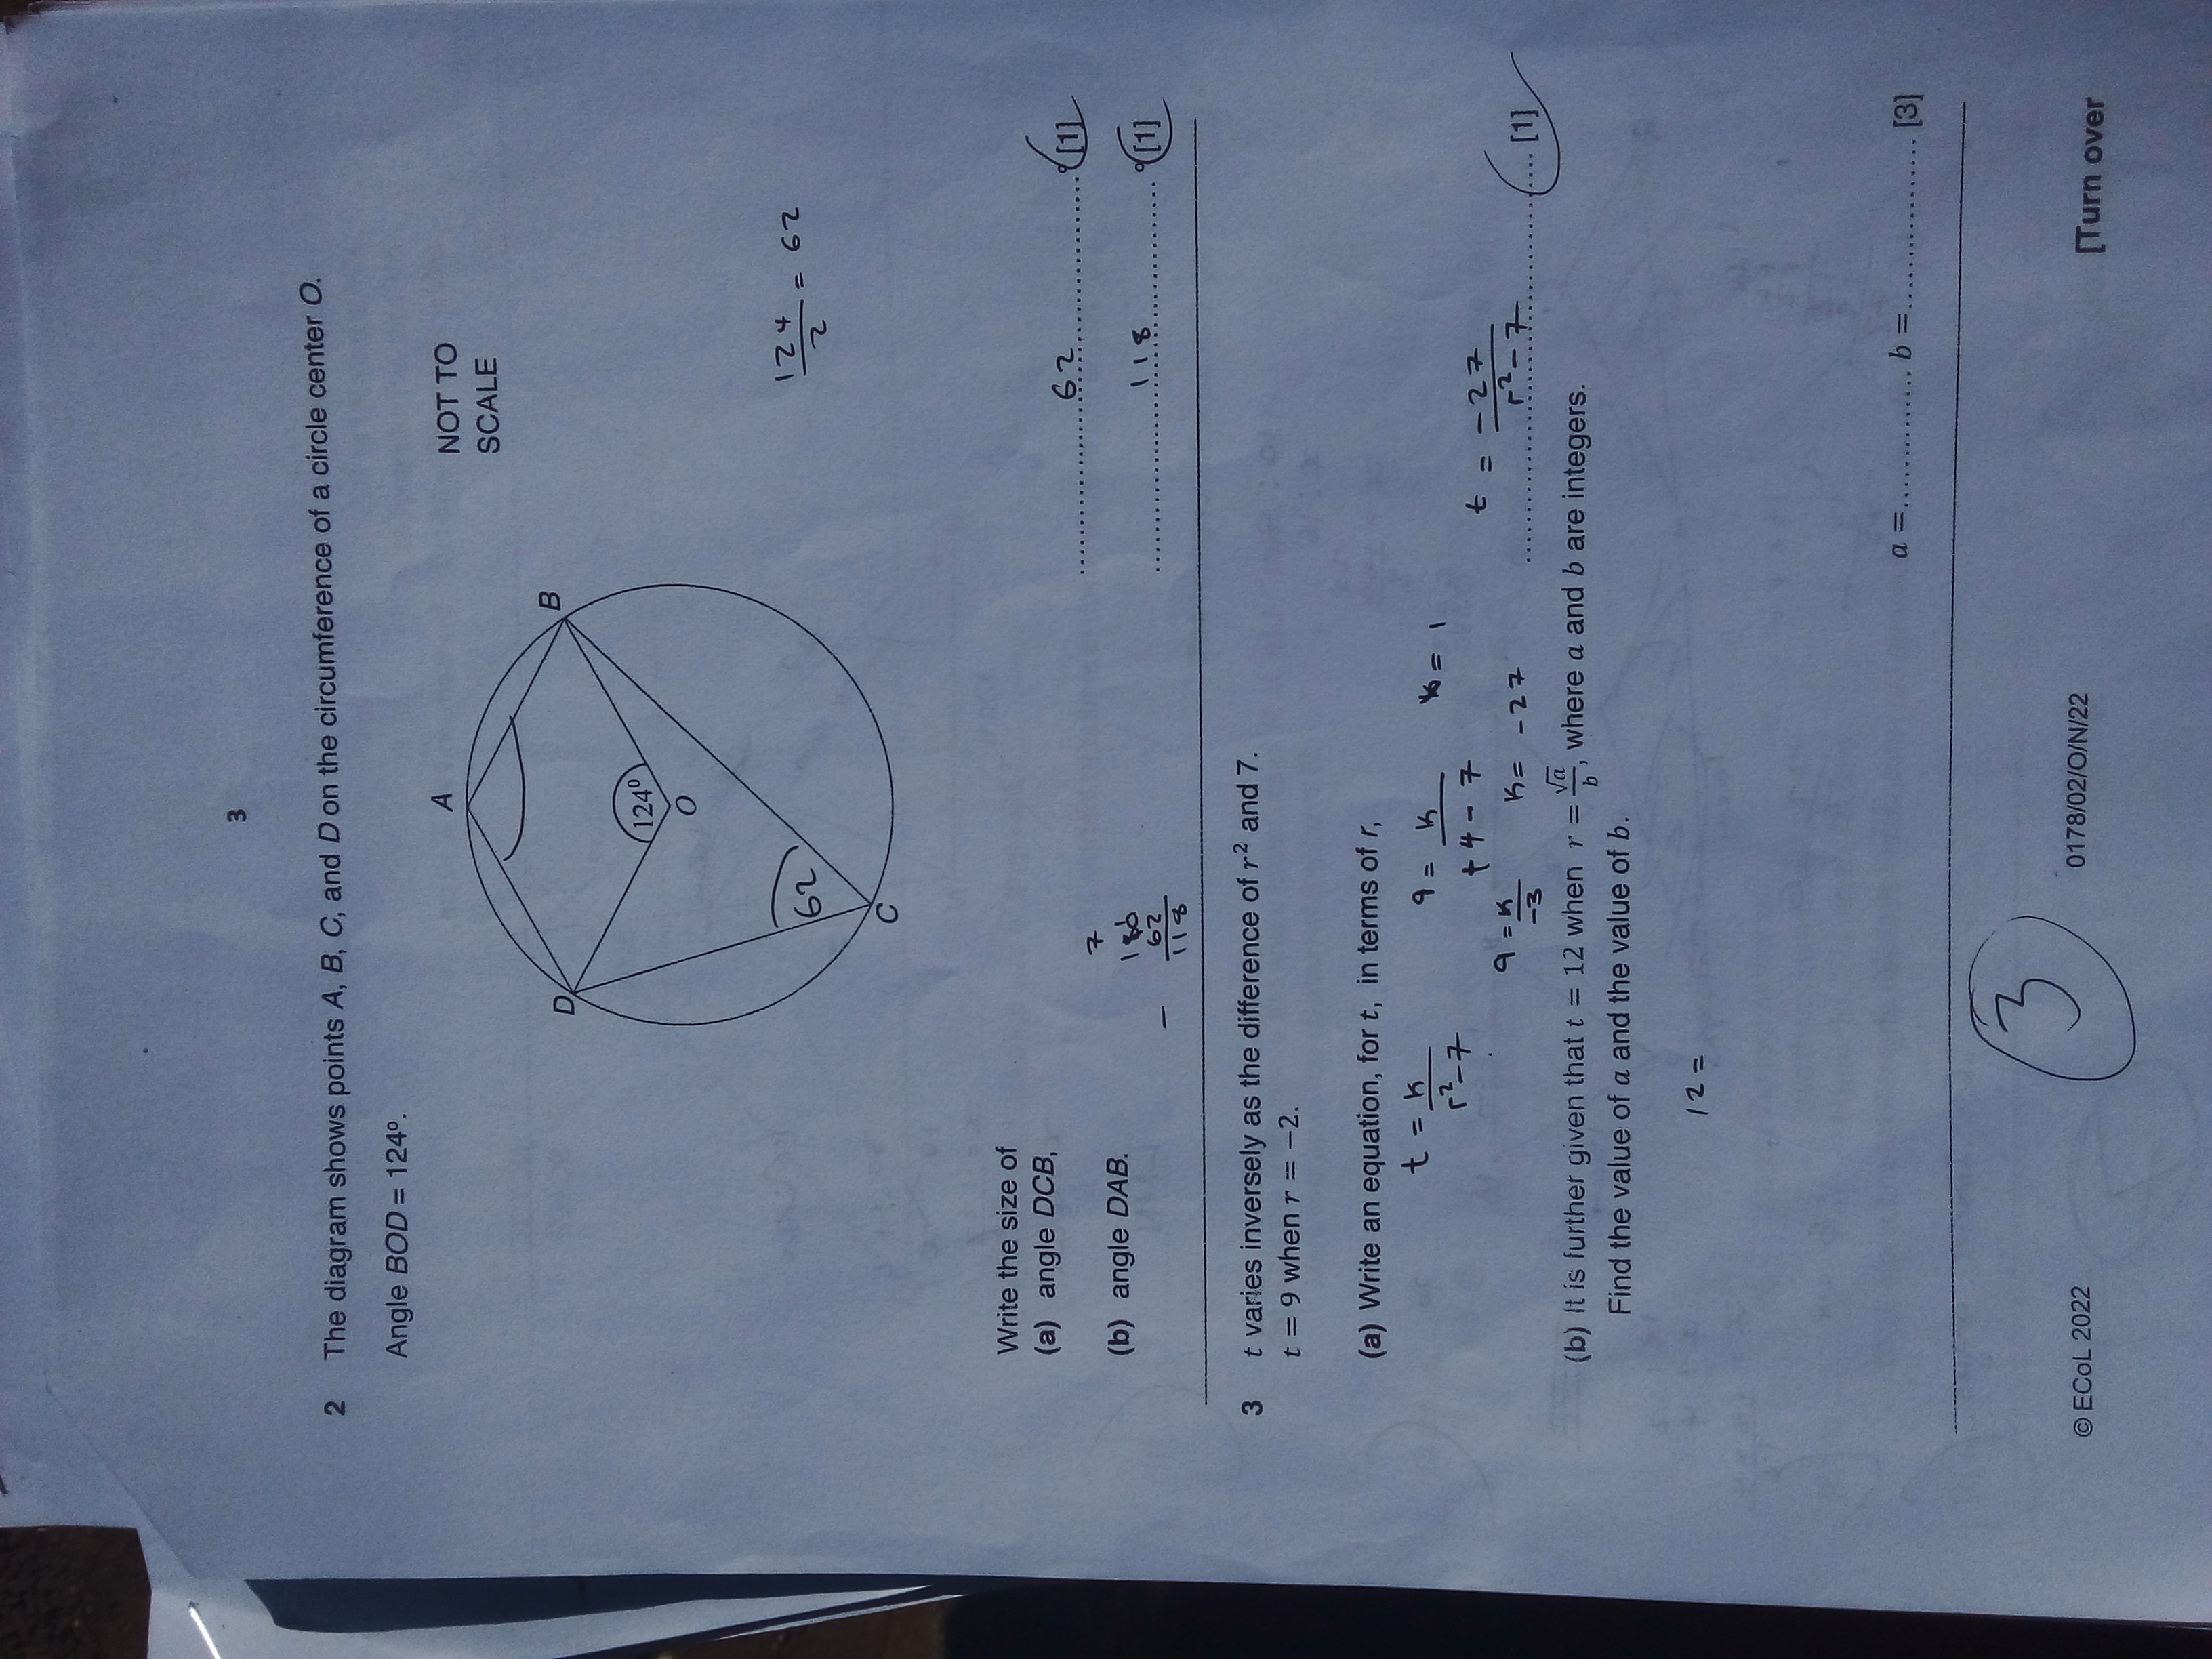 3
2 The diagram shows points A, B, C, and D on the circumference of a circle center O.
Angle BOD = 124º.
A
NOT TO
SCALE
D
B
124⁰
O
62
C
124/2 = 62
Write the size of
(a) angle DCB,
62 º [1]
(b) angle DAB.
7
180
− 62
118
118 º [1]
3 t varies inversely as the difference of r² and 7.
t = 9 when r = −2.
(a) Write an equation, for t, in terms of r,
t = k/(r²−7)
9 = k/(+4−7)
= 1
9 = k/−3
k = −27
t = −27/(r²−7) [1]
(b) It is further given that t = 12 when r = √a/b, where a and b are integers.
Find the value of a and the value of b.
12 =
a =.............. b =.................. [3]
3
© ECoL 2022
0178/02/O/N/22
[Turn over